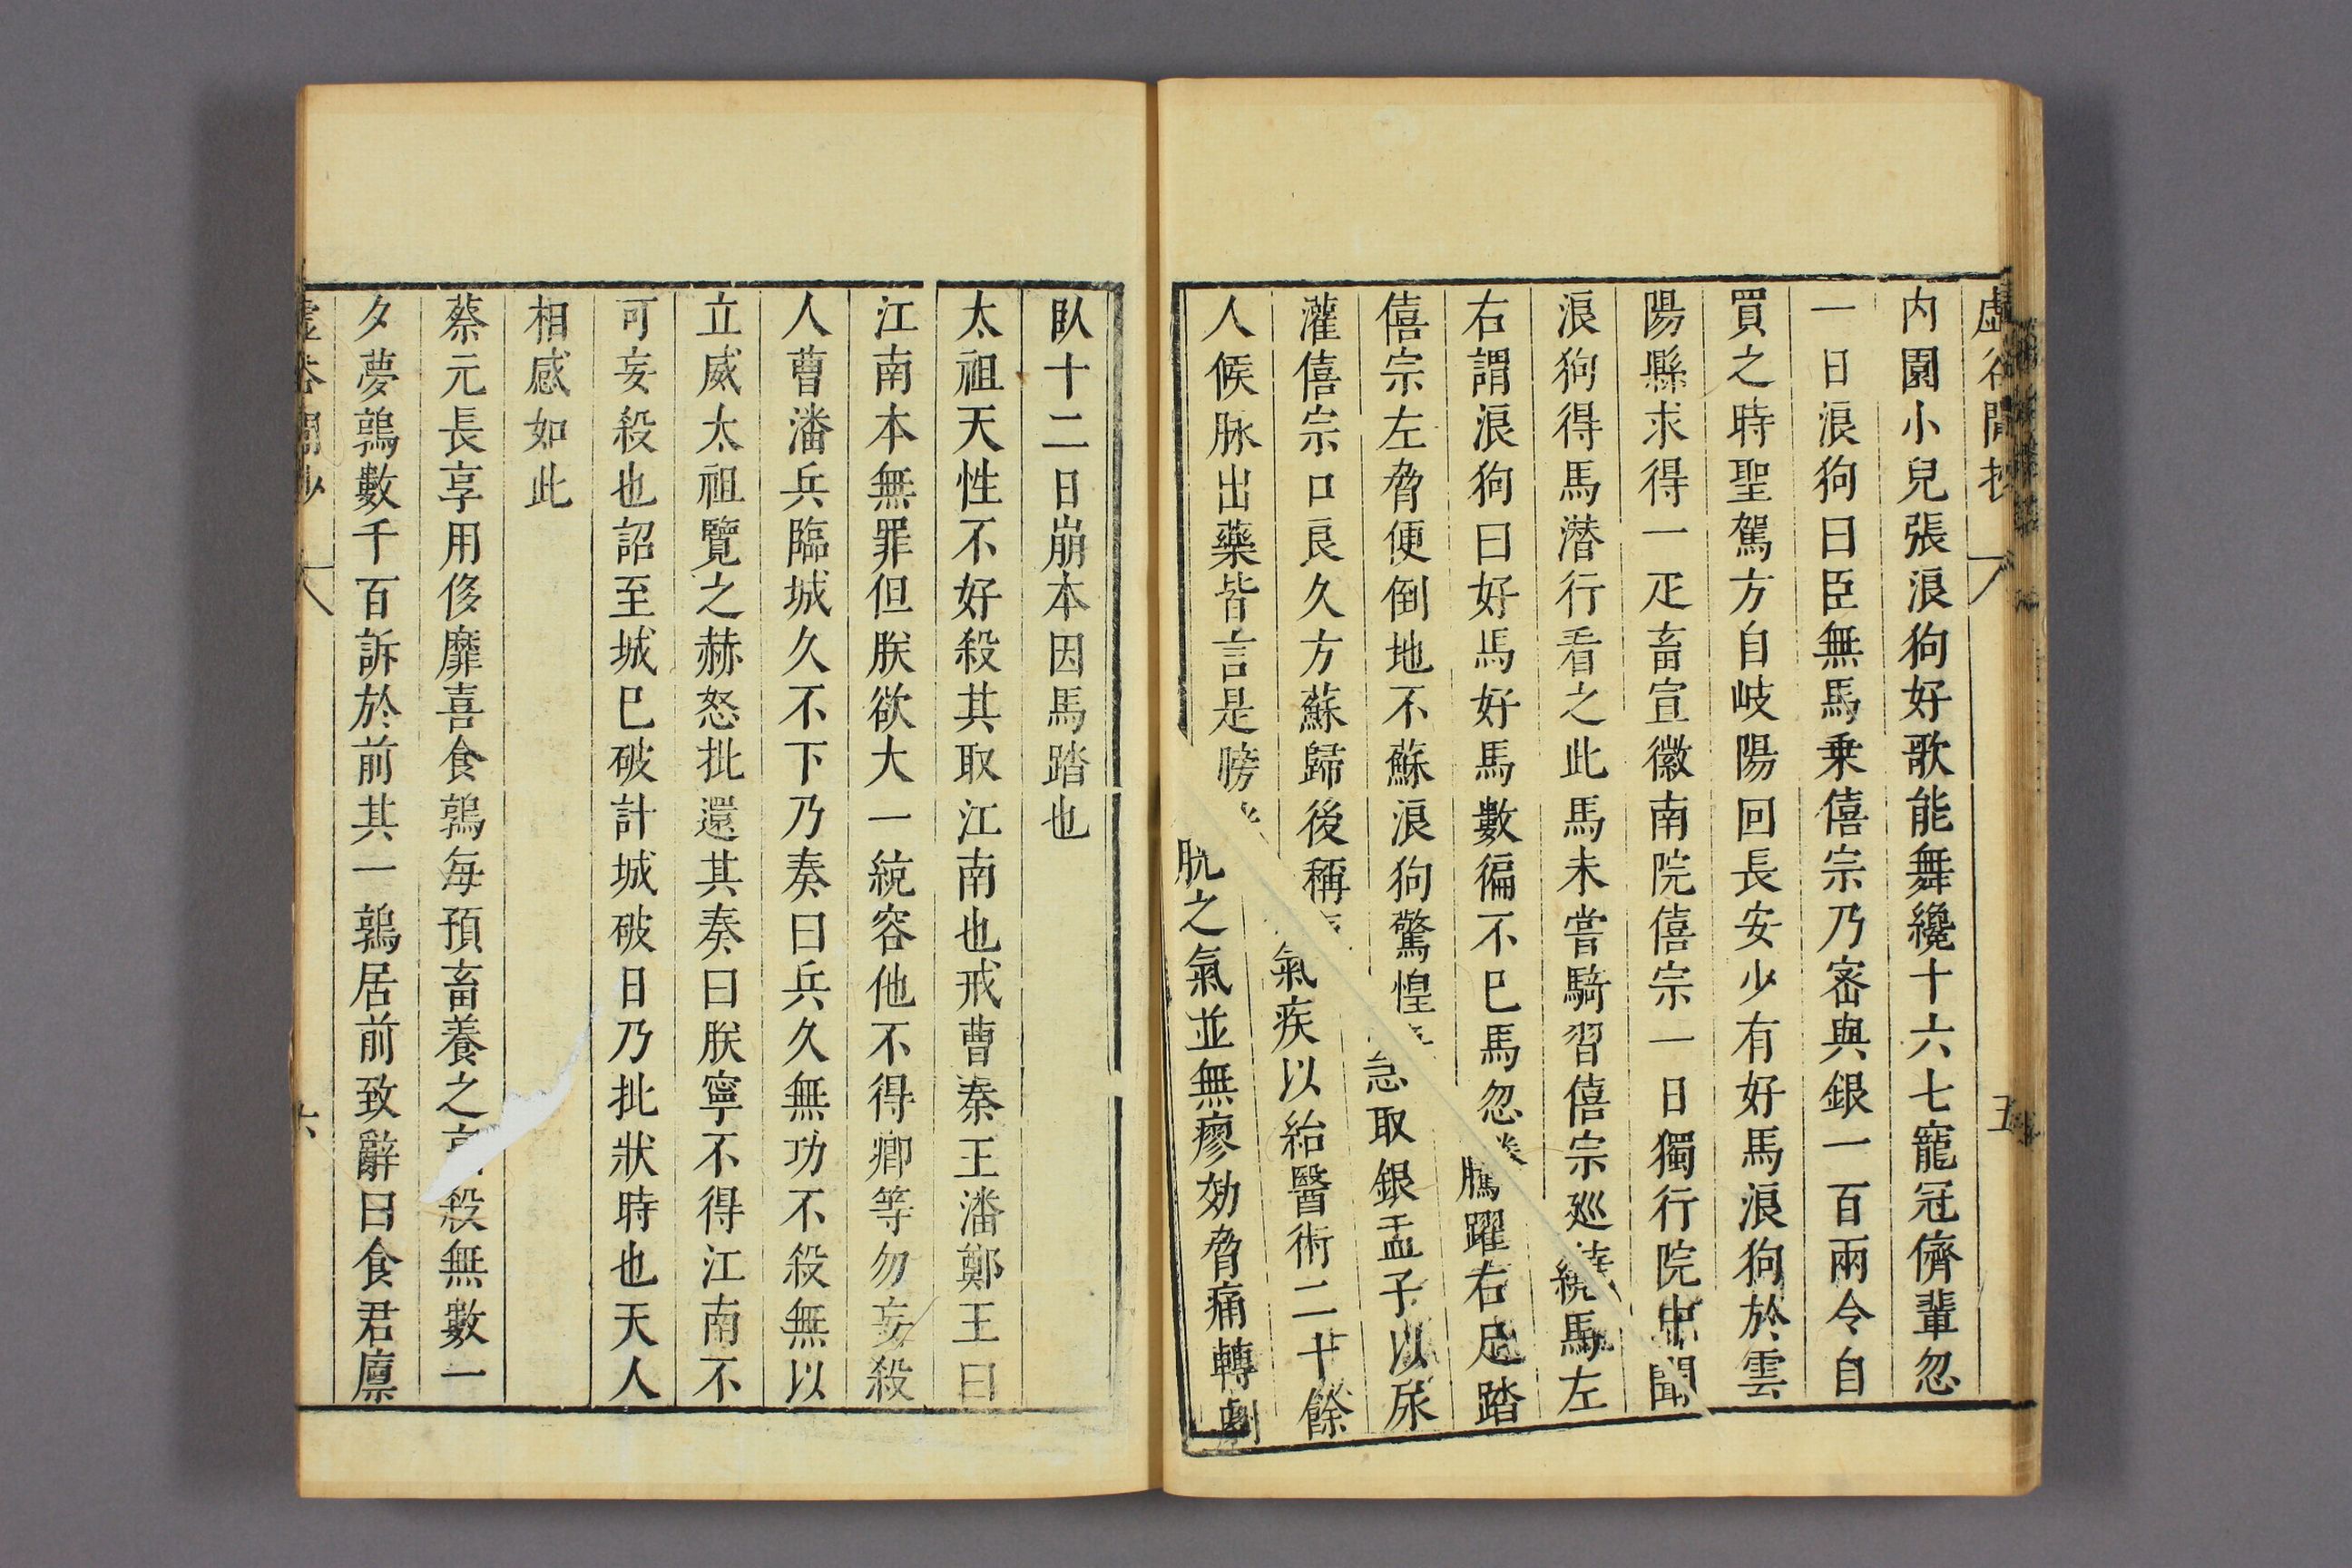 虛谷閒抄
五
内園小兒張浪狗好歌能舞纔十六七寵冠儕輩忽
一日浪狗曰臣無馬乗僖宗乃宻與銀一百兩令自
買之時聖駕方自岐陽回長安少有好馬浪狗於雲
陽縣求得一疋畜宣徽南院僖宗一日獨行院中聞
浪狗得馬潜行看之此馬未嘗騎習僖宗廵繞馬左
右謂浪狗曰好馬好馬數徧不巳馬忽騰躍右足踏
僖宗左脅便倒地不蘇浪狗驚惶急取銀盂子以尿
灌僖宗口良久方蘇歸後稱氣疾以紿醫術二十餘
人候脉出藥皆言是膀胱之氣並無廖効脅痛轉劇
臥十二日崩本因馬踏也
太祖天性不好殺其取江南也戒曹秦王潘鄭王曰
江南本無罪但朕欲大一統容他不得卿等勿妄殺
人曹潘兵臨城久不下乃奏曰兵久無功不殺無以
立威太祖覽之赫怒批還其奏曰朕寧不得江南不
可妄殺也詔至城巳破計城破日乃批狀時也天人
相感如此
蔡元長享用侈靡喜食鶉每預畜養之烹殺無數一
夕夢鶉數千百訴於前其一鶉居前致辭曰食君廪
虛谷閒抄
六